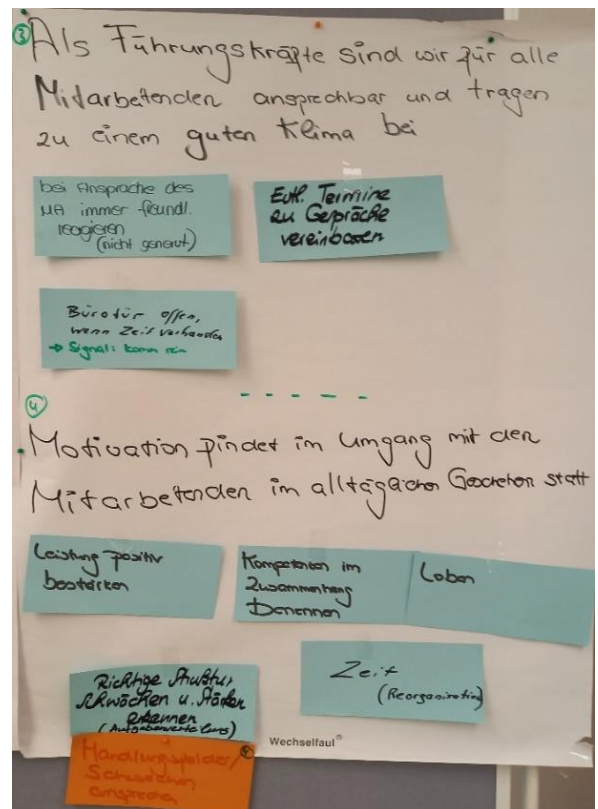 ③ Als Führungskräfte sind wir für alle
Mitarbeitenden ansprechbar und tragen
zu einem guten Klima bei
bei Ansprache des
MA immer freundl.
reagieren
(nicht genervt)
Evtl. Termine
zu Gespräche
vereinbaren
Bürotür offen,
wenn Zeit vorhanden
→ Signal: komm rein
④
Motivation findet im Umgang mit den
Mitarbeitenden im alltäglichen Geschehen statt
Leistung positiv
bestärken
Kompetenzen im
Zusammenhang
benennen
Loben
Richtige Struktur
Schwächen u. Stärken
erkennen
(Aufgabenverteilung)
Zeit
(Reorganisation)
Wechselfaul®
Handlungsfelder/
Schwächen
ansprechen